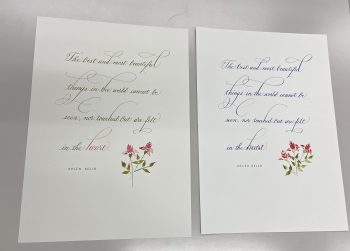 The best and most beautiful
things in the world cannot be
seen, nor touched but are felt
in the heart.
HELEN KELLER
The best and most beautiful
things in the world cannot be
seen, nor touched but are felt
in the heart.
HELEN KELLER